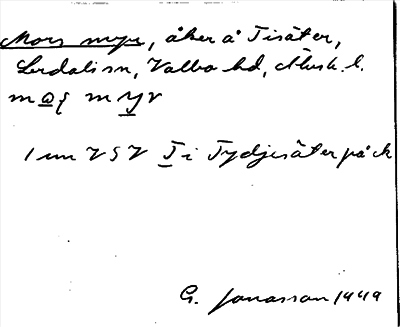 Mors myr, åker å Tisäter,
Lerdals sn, Valbo hd, Älvsb. l.
m o̲ ʃ m y̲ r
1 cm V S V T̲ i Tydjesäter på ck
G. Jonasson 1949